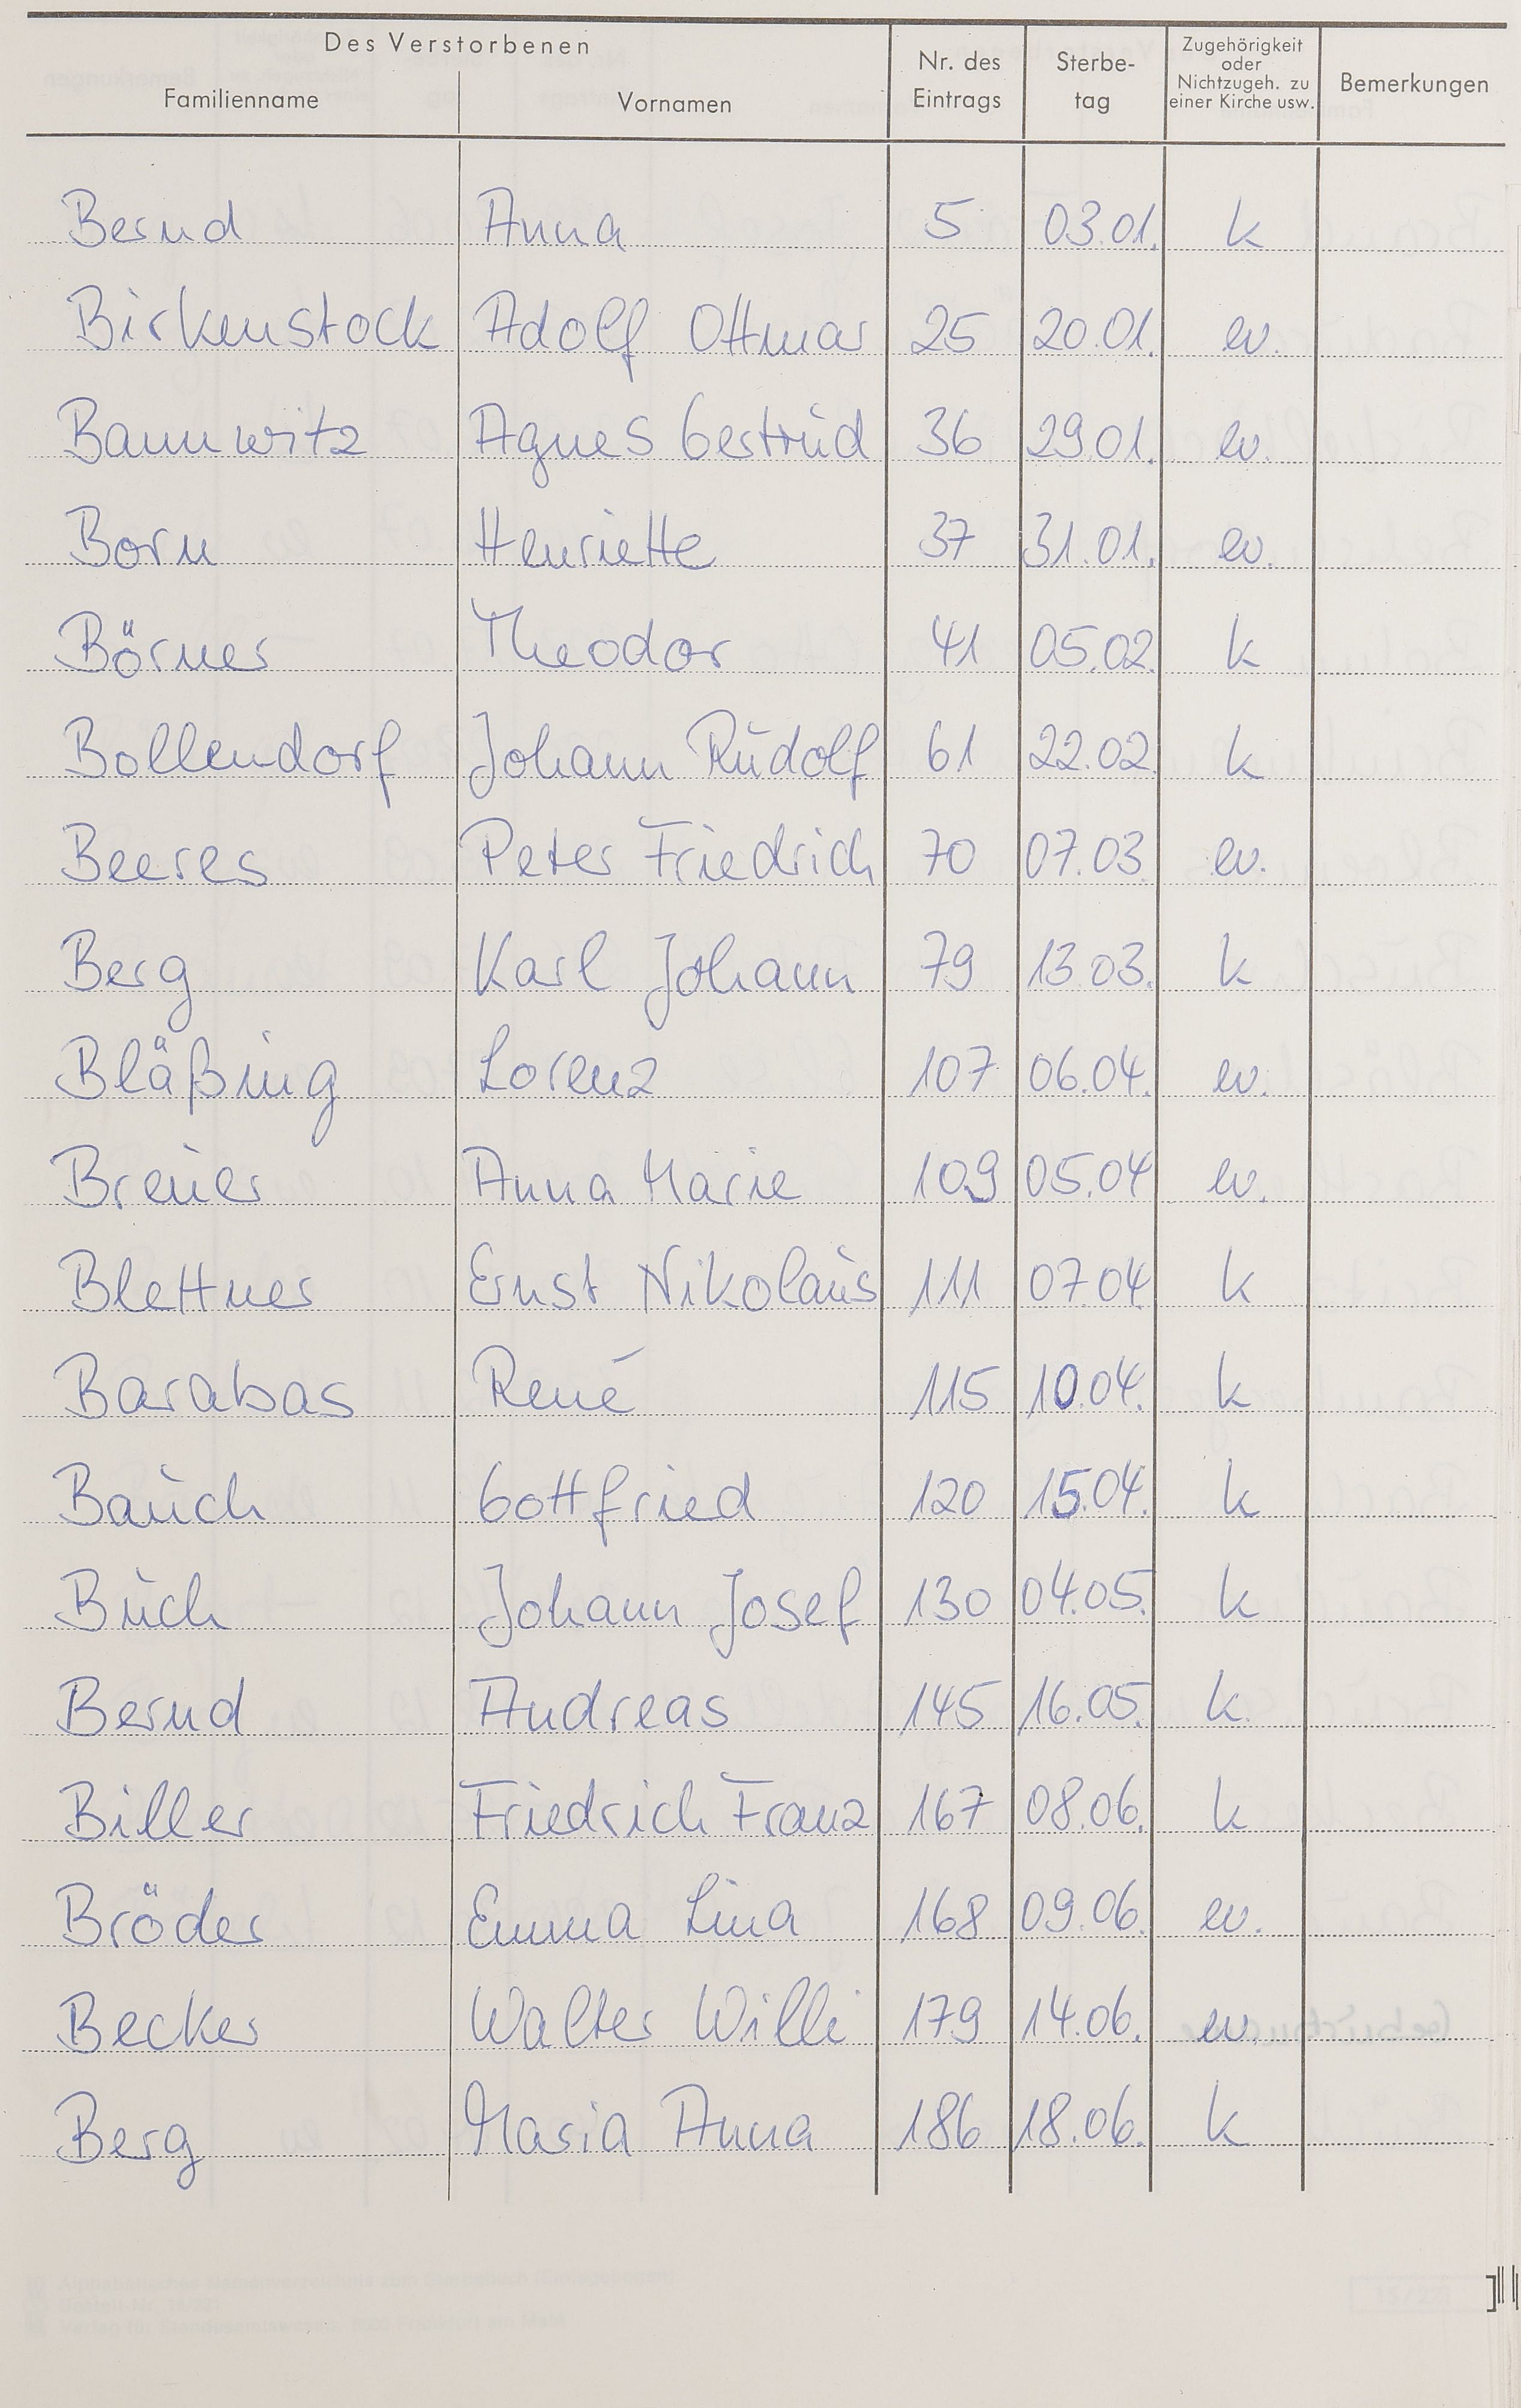 Des Verstorbenen
Familienname Vornamen Nr. des Eintrags Sterbe-tag Zugehörigkeit oder Nichtzugeh. zu einer Kirche usw. Bemerkungen
Bernd Anna 5 03.01. k
Birkenstock Adolf Ottmar 25 20.01. ev.
Bannwitz Agnes Gertrud 36 29.01. ev.
Born Henriette 37 31.01. ev.
Börner Theodor 41 05.02. k
Bollendorf Johann Rudolf 61 22.02. k
Beeres Peter Friedrich 70 07.03. ev.
Berg Karl Johann 79 13.03. k
Bläßing Lorenz 107 06.04. ev.
Breuer Anna Marie 109 05.04 ev.
Blettner Ernst Nikolaus 111 07.04. k
Barabas René 115 10.04. k
Bauch Gottfried 120 15.04. k
Buch Johann Josef 130 04.05. k
Bernd Andreas 145 16.05. k.
Biller Friedrich Franz 167 08.06. k
Bröder Emma Lina 168 09.06. ev.
Becker Walter Willi 179 14.06. ev.
Berg Maria Anna 186 18.06. k